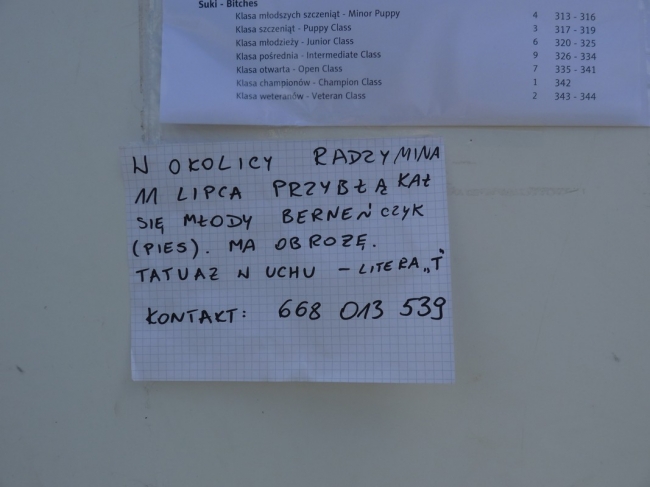 Suki - Bitches
Klasa młodszych szczeniąt - Minor Puppy 4 313 - 316
Klasa szczeniąt - Puppy Class 3 317 - 319
Klasa młodzieży - Junior Class 6 320 - 325
Klasa pośrednia - Intermediate Class 9 326 - 334
Klasa otwarta - Open Class 7 335 - 341
Klasa championów - Champion Class 1 342
Klasa weteranów - Veteran Class 2 343 - 344
W OKOLICY RADZYMINA
11 LIPCA PRZYBŁĄKAŁ
SIĘ MŁODY BERNEŃCZYK
(PIES). MA OBROŻĘ.
TATUAŻ W UCHU - LITERA „T"
KONTAKT: 668 013 539